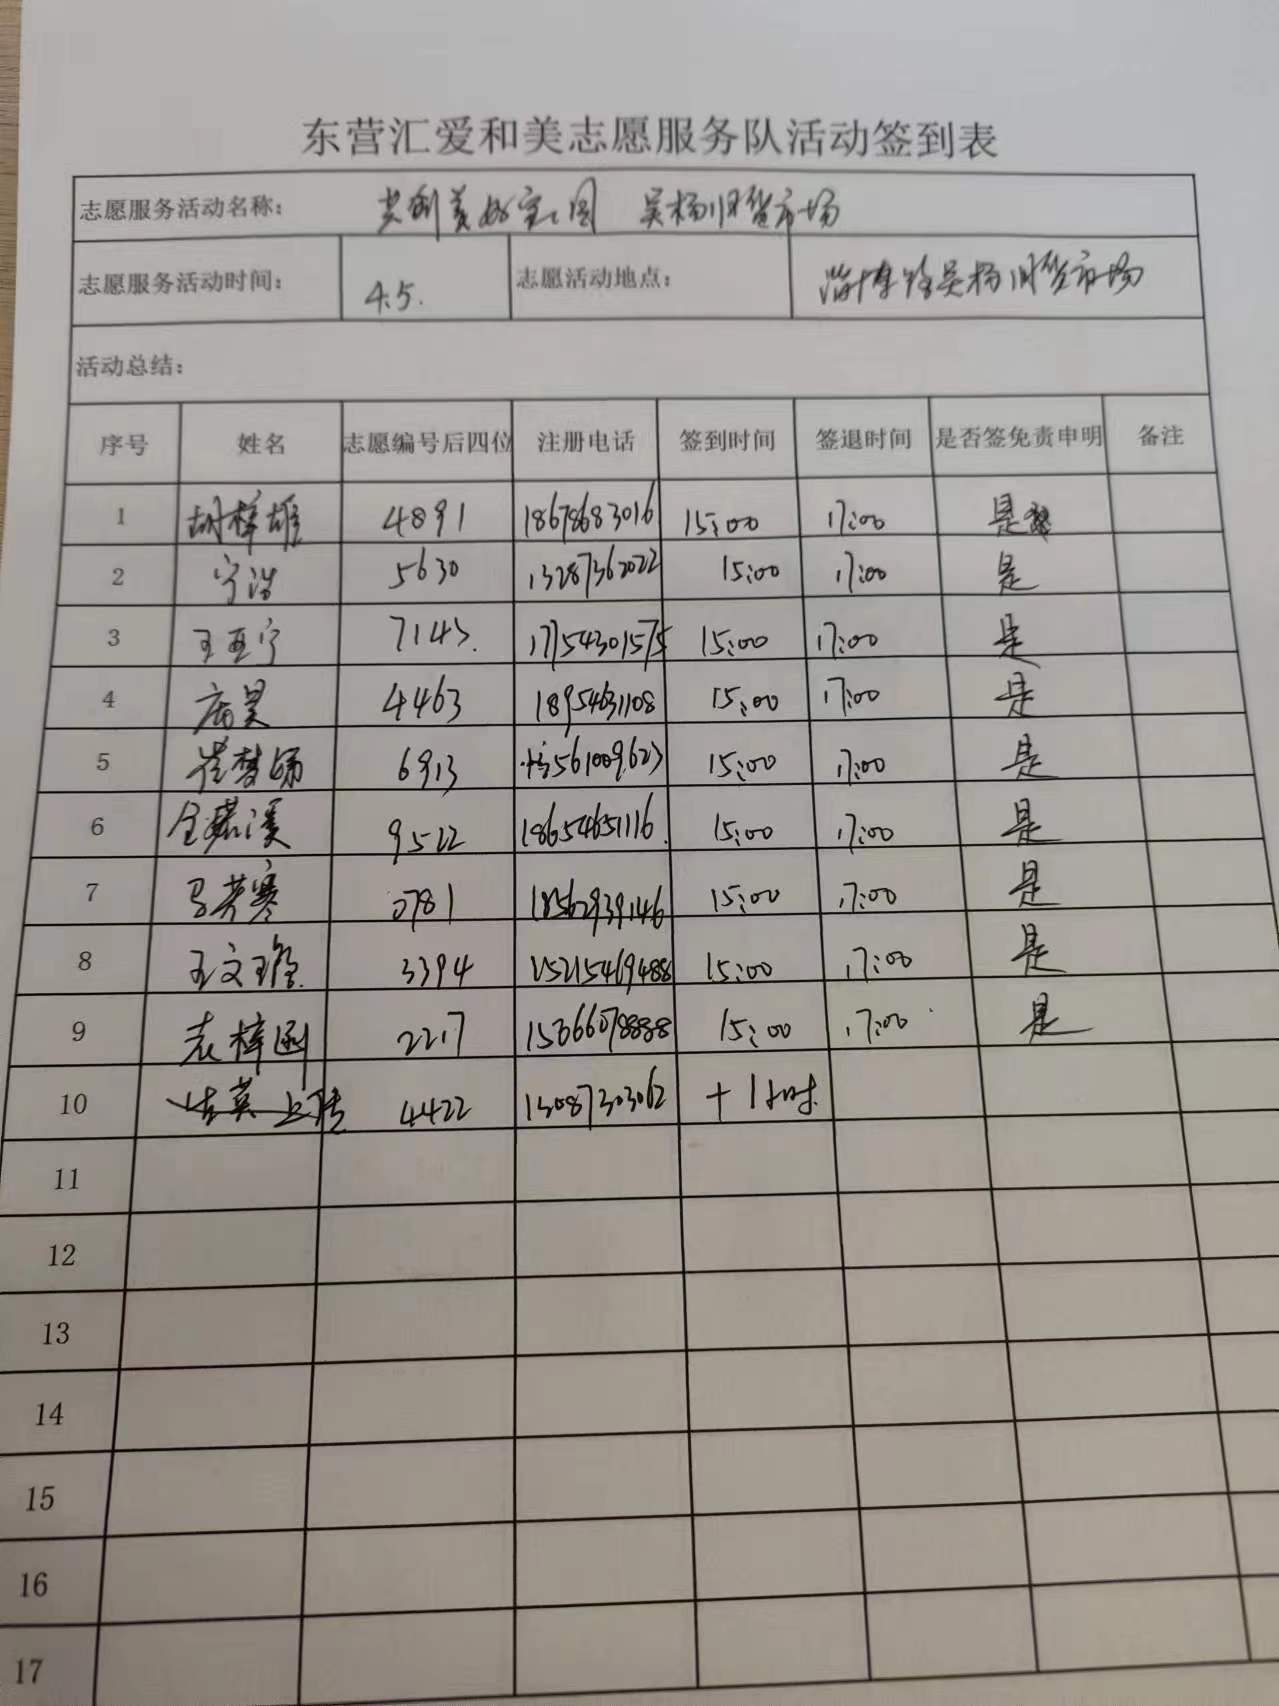 东营汇爱和美志愿服务队活动签到表
志愿服务活动名称： 共创美好家园 吴杨旧货市场
志愿服务活动时间： 4.5. 志愿活动地点： 淄博路吴杨旧货市场
活动总结：
序号 姓名 志愿编号后四位 注册电话 签到时间 签退时间 是否签免责申明 备注
1 胡梓雄 4891 18678683016 15:00 17:00 是
2 宁浩 5630 13287362022 15:00 17:00 是
3 王亚宁 7143. 17754301575 15:00 17:00 是
4 4463 18954631108 15:00 17:00 是
5 崔梦 6913 15:00 17:00 是
6 9522 18654651116. 15:00 17:00 是
7 马芳寒 0781 18562939146 15:00 17:00 是
8 王文 3394 15215469488 15:00 17:00 是
9 袁梓函 2217 15366078888 15:00 17:00 是
10 4422 15087303062 +1小时
11
12
13
14
15
16
17